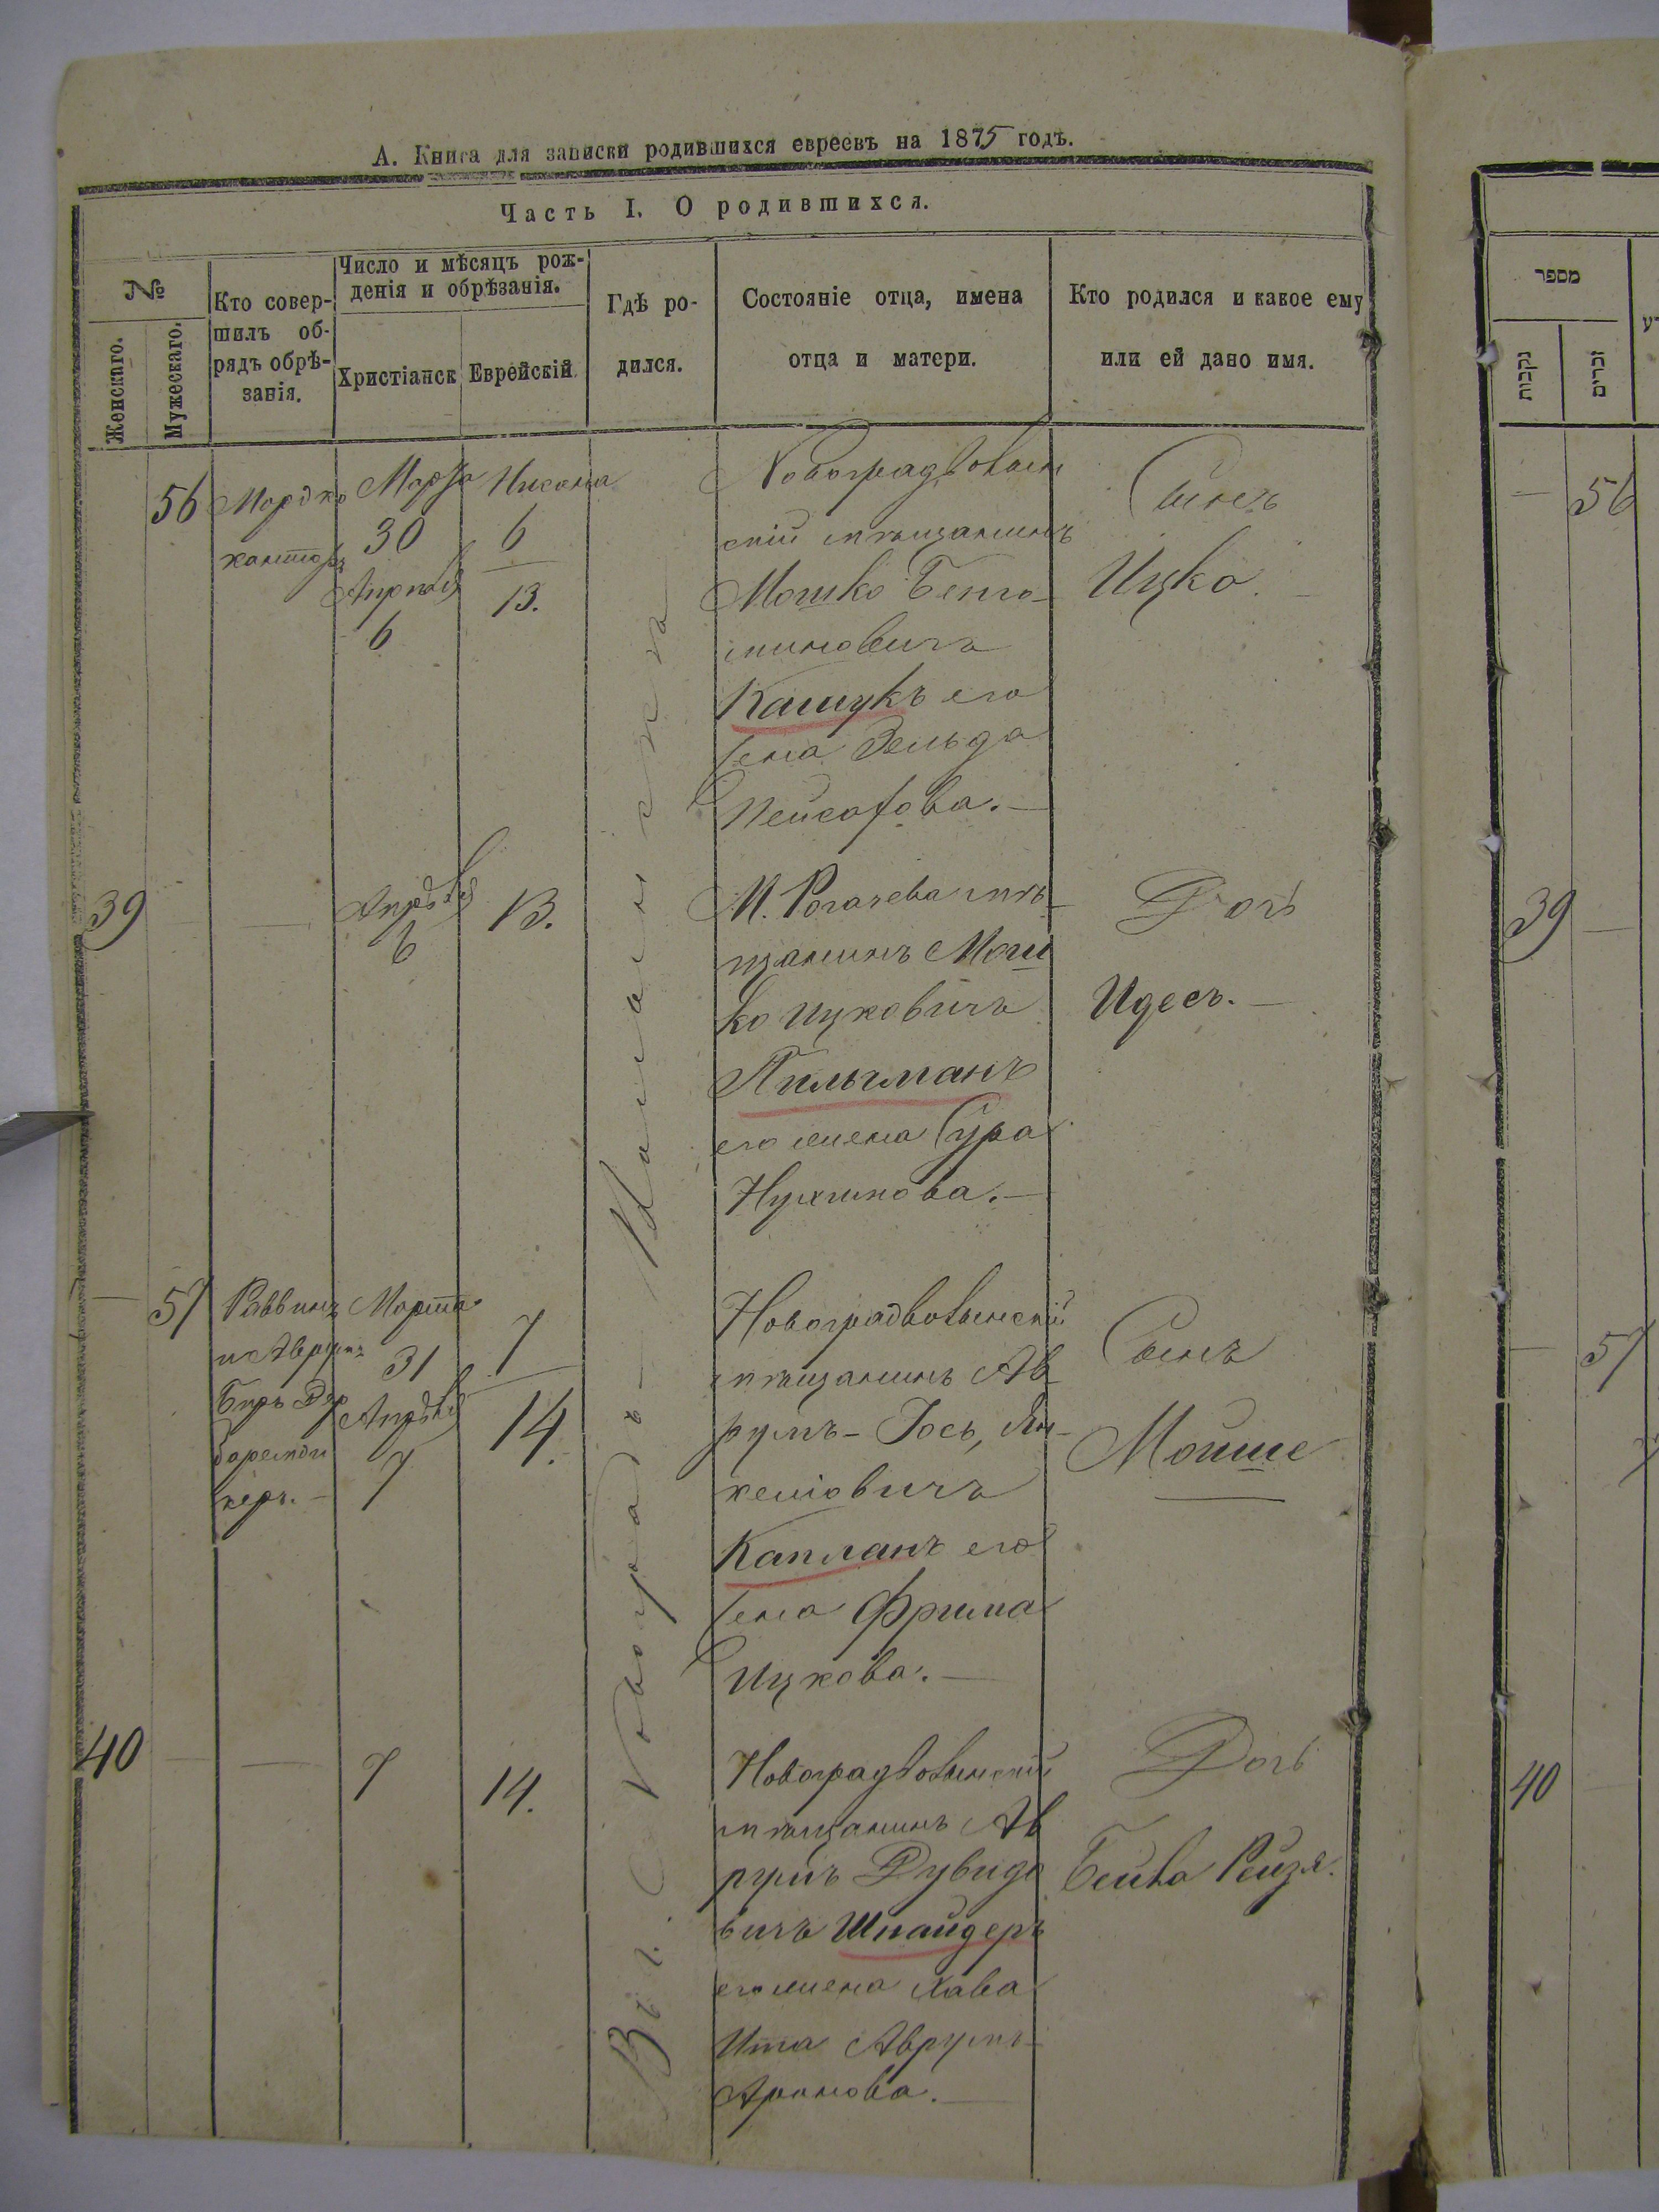 А. Книга для записки родившихся евреевъ на 1875 годъ.
Часть I. О родившихся.
№
Женскаго.
Мужескаго.
Кто совер-
шилъ об-
рядъ обрѣ-
занія.
Число и мѣсяцъ рож-
денія и обрѣзанія.
Христіанск
Еврейскій
Гдѣ ро-
дился.
Состояніе отца, имена
отца и матери.
Кто родился и какое ему
или ей дано имя.
Въ г. Новоградъ-Волынскѣ
56
Мордко
канторъ
Марта
30
Апрѣля
6
Нисана
6
13.
Новоградволын
скій мѣщанинъ
Мошко Беню-
миновичъ
Кашукъ его
жена Зельда
Пейсахова.
Сынъ
Ицко.
39
—
Апрѣля
6
13.
М. Рогачева мѣ-
щанинъ Мош
ко Ицковичъ
Пильчманъ
его жена Сура
Нухимова.
Дочь
Идесъ.
— 57
Раввинъ
и Аврумъ
Беръ
Марта
31
Апрѣля
7
7
14.
Новоградволынскій
мѣщанинъ Ав
румъ-Іось, Ян-
келіовичъ
Капланъ его
жена Фрима
Ицкова.
Сынъ
Мойше
40
—
7
14.
Новоградволынскій
мѣщанинъ Ав
румъ Дувидо
вичъ Шнайдеръ
его жена Хава
Ита Аврумъ-
Аронова.
Дочь
Бейла Рейзя.
מספר
נקבות
זכרים
— 56
39 —
— 57
40 —